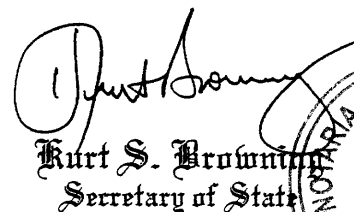 Kurt S. Browning
Kurt S. Browning
Secretary of State
NOTARIA